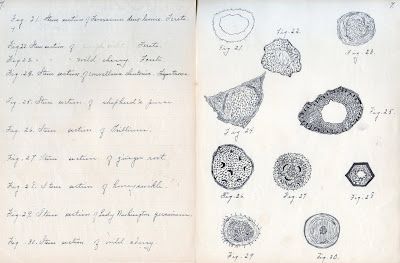 7
Fig. 21. Stem section of
Fig 22. Stem section of
Fig 23. " " " wild cherry.
Fig. 24. Stem section of
Fig. 25. Stem section of shepherd's purse
Fig. 26. Stem section of Trillium.
Fig. 27. Stem section of ginger root.
Fig. 28. Stem section of honeysuckle.
Fig. 29. Stem section of Lady Washington geranium.
Fig. 30. Stem section of wild cherry.
8
Fig. 21.
Fig. 22.
Fig. 23.
Fig. 24.
Fig. 25.
Fig. 26
Fig. 27.
Fig. 28
Fig. 29
Fig. 30.